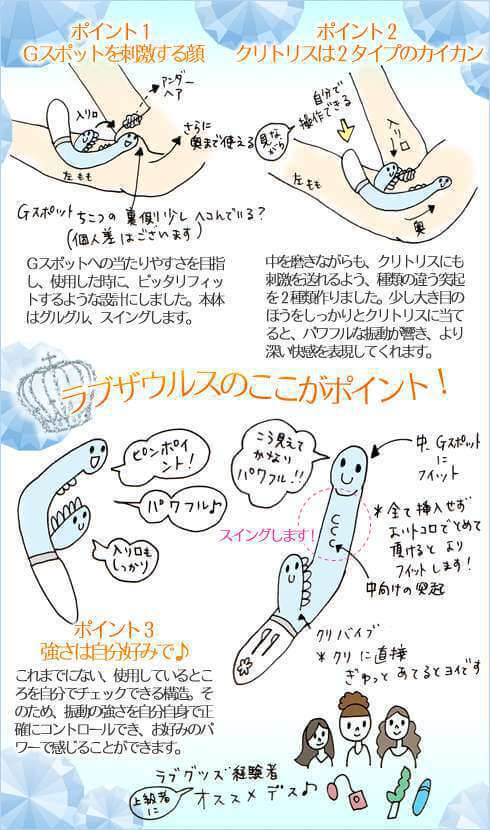 ポイント1
Gスポットを刺激する顔
アンダーヘア
入り口
さらに奥まで使える
左もも
Gスポット ちつの裏側少しヘコんでいる?
(個人差はございます)
Gスポットへの当たりやすさを目指
し、使用した時に、ピッタリフィッ
トするような設計にしました。本体
はグルグル、スイングします。
ポイント2
クリトリスは2タイプのカイカン
自分で
操作できる
見ながら
入り口
左もも
奥
中を磨きながらも、クリトリスにも
刺激を送れるよう、種類の違う突起
を2種類作りました。少し大き目の
ほうをしっかりとクリトリスに当て
ると、パワフルな振動が響き、より
深い快感を表現してくれます。
ラブザウルスのここがポイント!
ピンポイント!
パワフル♪
入り口も
しっかり
こう見えて
かなり
パワフル!!
中、Gスポット
に
フィット
スイングします!
*全て挿入せず
よいトコロでとめて
頂けるとより
フィットします!
中向けの突起
クリバイブ
*クリに直接
ぎゅっとあてるとヨイです
ポイント3
強さは自分好みで♪
これまでにない、使用しているとこ
ろを自分でチェックできる構造。そ
のため、振動の強さを自分自身で正
確にコントロールでき、お好みのパ
ワーで感じることができます。
ラブグッズ経験者
上級者に
オススメデス♪